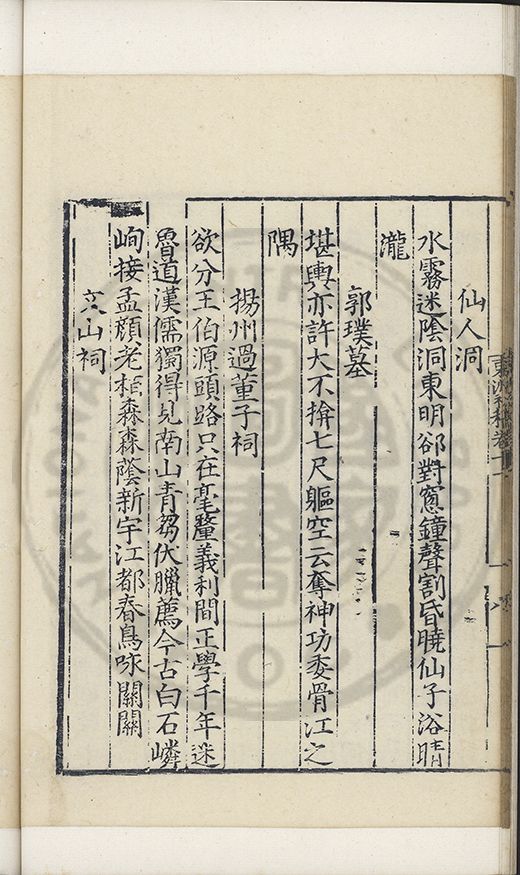 仙人洞
水霧迷陰洞東明郤對窻鐘聲割昏曉仙子浴晴
瀧
郭璞墓
堪輿亦許大不揜七尺軀空云奪神功委骨江之
隅
揚州過董子祠
欲分王伯源頭路只在毫釐義利間正學千年迷
魯道漢儒獨得見南山青芻伏臘薦今古白石嶙
峋接孟顔老桂森森蔭新宇江都春鳥咏關關
文山祠